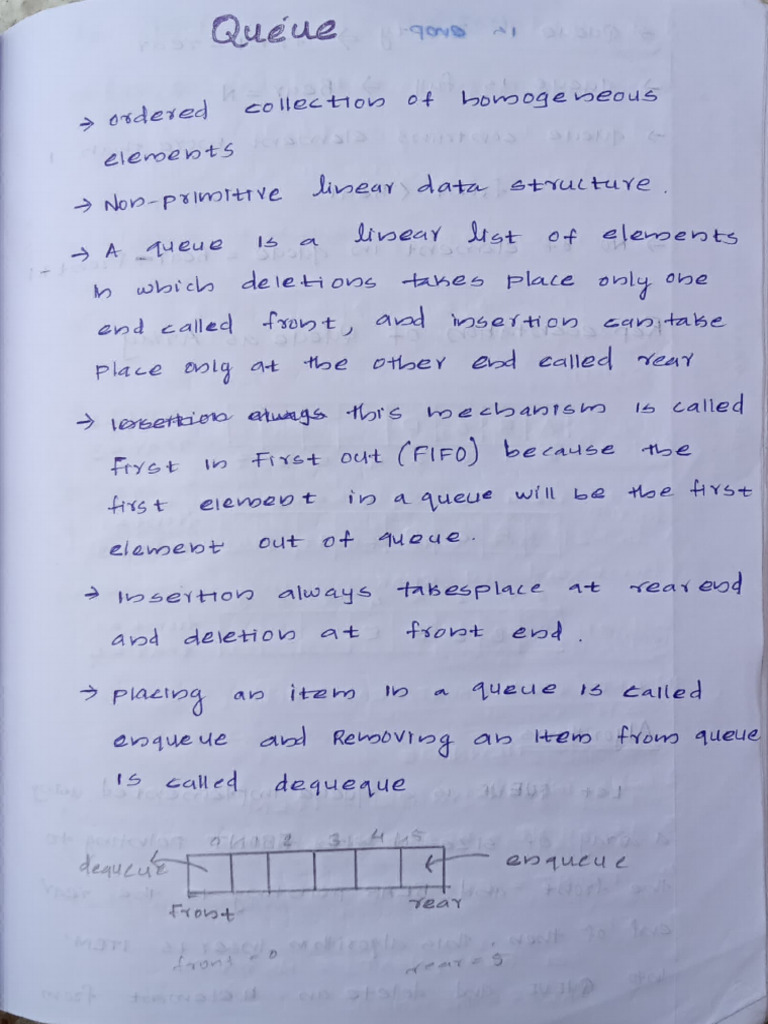 Queue
→ ordered collection of homogeneous
elements
→ Non-primitive linear data structure.
→ A queue is a linear list of elements
in which deletions takes place only one
end called front, and insertion can take
place only at the other end called rear
→ this mechanism is called
First in First out (FIFO) because the
first element in a queue will be the first
element out of queue.
→ Insertion always takesplace at rear end
and deletion at front end.
→ placing an item in a queue is called
enqueue and Removing an item from queue
is called dequeque
0 2 3 4 5
dequeue enqueue
front rear
front = 0 rear = 5